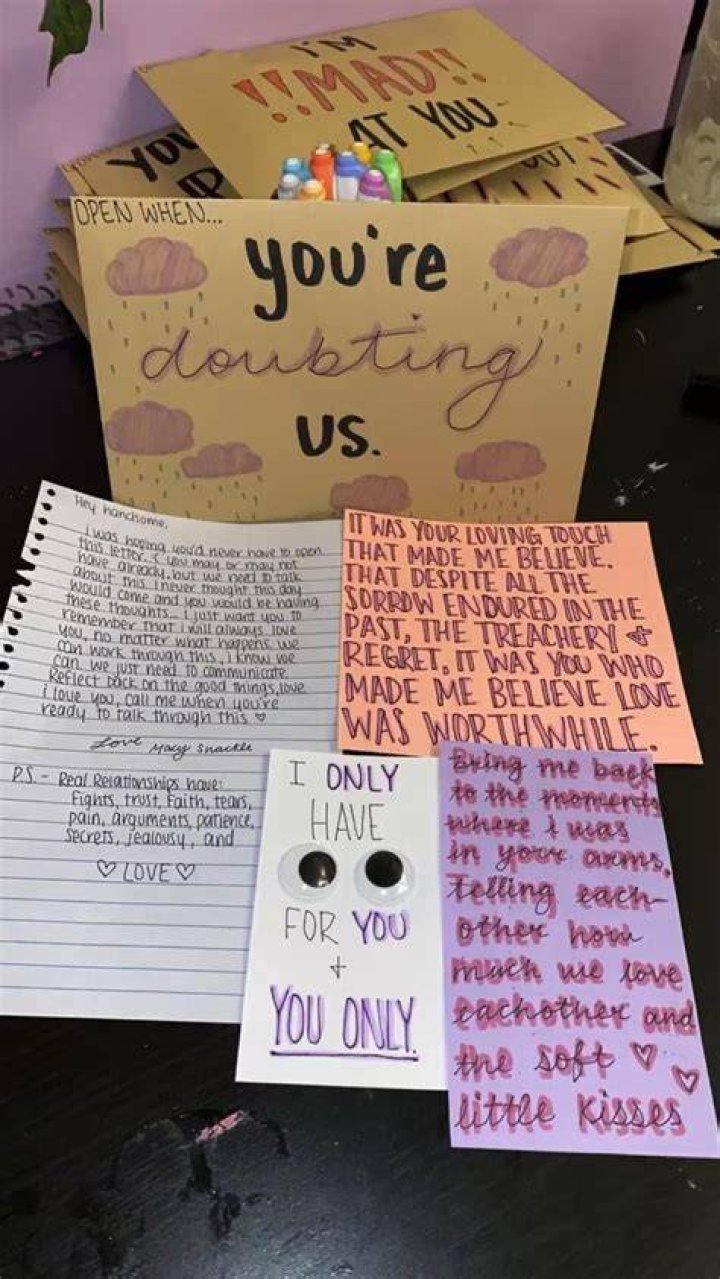 I'M
!!MAD!!
AT YOU
YOU
OPEN WHEN...
you're
doubting
US.
Hey handsome,
I was hoping you'd never have to open
this letter, & you may or may not
have already, but we need to talk
about this. I never thought this day
would come and you would be having
these thoughts... I just want you to
remember that I will always love
you, no matter what happens. we
can work through this, i know we
can. we just need to communicate.
Reflect back on the good things, love.
i love you, call me when you're
ready to talk through this ♡
Love Macy Snackle
P.S. - Real Relationships have:
Fights, trust, Faith, tears,
pain, arguments, patience,
secrets, jealousy, and
♡ LOVE ♡
IT WAS YOUR LOVING TOUCH
THAT MADE ME BELIEVE.
THAT DESPITE ALL THE
SORROW ENDURED IN THE
PAST, THE TREACHERY &
REGRET, IT WAS YOU WHO
MADE ME BELIEVE LOVE
WAS WORTHWHILE.
I ONLY
HAVE
FOR YOU
+
YOU ONLY.
Bring me back
to the moments
where i was
in your arms,
Telling each-
other how
much we love
eachother and
the soft ♡
little kisses ♡